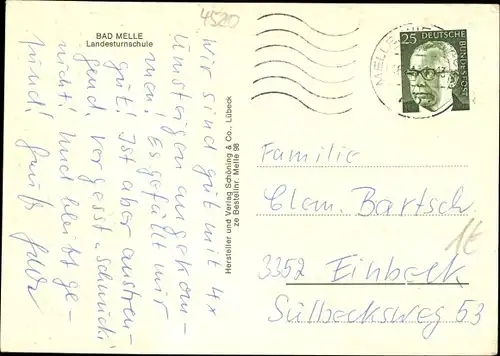 4520
BAD MELLE
Landesturnschule
Wir sind gut mit 4x
Umsteigen angekom-
men! Es gefällt mir
gut! Ist aber anstren-
gend. Vergesst
nicht! Und bleibt ge-
sund! Gruß
Hersteller und Verlag Schöning & Co., Lübeck
ze Bestellnr. Melle 98
MELLE
25 DEUTSCHE
BUNDESPOST
Familie
Clem. Bartsch
1€
3352 Einbeck
Sülbecksweg 53